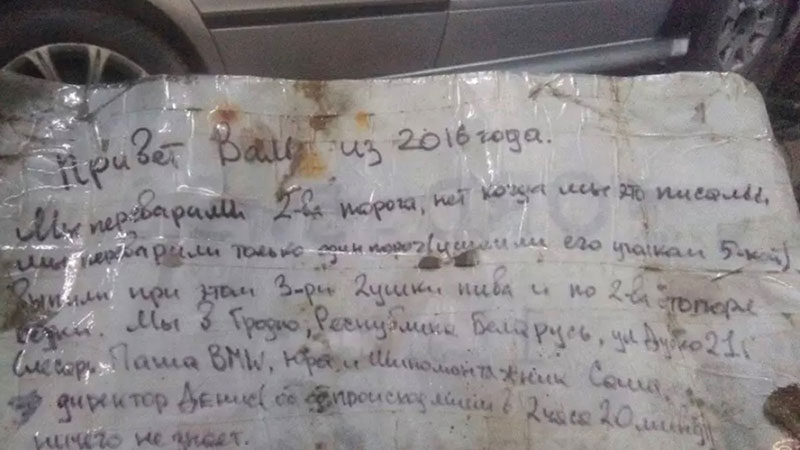 Привет Вам из 2016 года.
Мы переварили 2-ва порога, нет когда мы это писали,
мы переварили только один порог (усилили его уголком 5-кой)
Выпили при этом 3-ри 2ушки пива и по 2-ва стопаря
водки. Мы в Гродно, Республика Беларусь, ул Дубко 21
Слесарь Паша BMW, Юра и Шиномонтажник Саша.
директор Денис (о происходящем в 2 часа 20 минут)
ничего не знает.